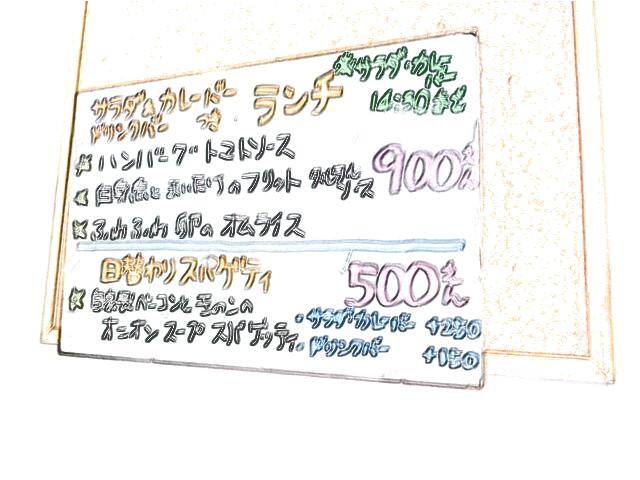 サラダ&カレーバー
ドリンクバー つき
ランチ
※サラダ・カレー
14:30まで
ハンバーグトマトソース
900え
白身魚とまいたけのフリット タルタルソース
ふわふわ卵のオムライス
日替わりスパゲティ
500えん
自家製ベーコンときのこの
オニオンスープ スパゲッティ
・サラダカレーバー +250
・ドリンクバー +150